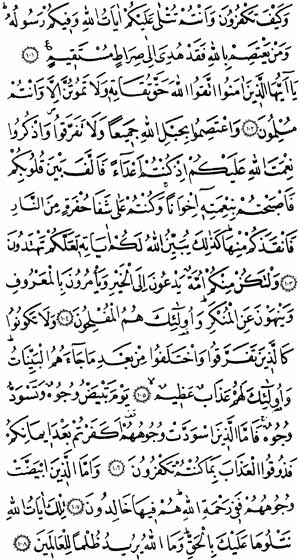 وَكَيْفَ تَكْفُرُونَ وَاَنْتُمْ تُتْلٰى عَلَيْكُمْ اٰيَاتُ اللّٰهِ وَف۪يكُمْ رَسُولُهُۜ
وَمَنْ يَعْتَصِمْ بِاللّٰهِ فَقَدْ هُدِيَ اِلٰى صِرَاطٍ مُسْتَق۪يمٍ۟ ﴿١٠١﴾
يَٓا اَيُّهَا الَّذ۪ينَ اٰمَنُوا اتَّقُوا اللّٰهَ حَقَّ تُقَاتِه۪ وَلَا تَمُوتُنَّ اِلَّا وَاَنْتُمْ
مُسْلِمُونَ ﴿١٠٢﴾ وَاعْتَصِمُوا بِحَبْلِ اللّٰهِ جَم۪يعًا وَلَا تَفَرَّقُواۖ وَاذْكُرُوا
نِعْمَتَ اللّٰهِ عَلَيْكُمْ اِذْ كُنْتُمْ اَعْدَٓاءً فَاَلَّفَ بَيْنَ قُلُوبِكُمْ
فَاَصْبَحْتُمْ بِنِعْمَتِه۪ٓ اِخْوَانًاۚ وَكُنْتُمْ عَلٰى شَفَا حُفْرَةٍ مِنَ النَّارِ
فَاَنْقَذَكُمْ مِنْهَاۜ كَذٰلِكَ يُبَيِّنُ اللّٰهُ لَكُمْ اٰيَاتِه۪ لَعَلَّكُمْ تَهْتَدُونَ
﴿١٠٣﴾ وَلْتَكُنْ مِنْكُمْ اُمَّةٌ يَدْعُونَ اِلَى الْخَيْرِ وَيَأْمُرُونَ بِالْمَعْرُوفِ
وَيَنْهَوْنَ عَنِ الْمُنْكَرِۜ وَاُو۬لٰٓئِكَ هُمُ الْمُفْلِحُونَ ﴿١٠٤﴾ وَلَا تَكُونُوا
كَالَّذ۪ينَ تَفَرَّقُوا وَاخْتَلَفُوا مِنْ بَعْدِ مَا جَٓاءَهُمُ الْبَيِّنَاتُۜ
وَاُو۬لٰٓئِكَ لَهُمْ عَذَابٌ عَظ۪يمٌۙ ﴿١٠٥﴾ يَوْمَ تَبْيَضُّ وُجُوهٌ وَتَسْوَدُّ
وُجُوهٌۚ فَاَمَّا الَّذ۪ينَ اسْوَدَّتْ وُجُوهُهُمْ اَكَفَرْتُمْ بَعْدَ ا۪يمَانِكُمْ
فَذُوقُوا الْعَذَابَ بِمَا كُنْتُمْ تَكْفُرُونَ ﴿١٠٦﴾ وَاَمَّا الَّذ۪ينَ ابْيَضَّتْ
وُجُوهُهُمْ فَف۪ي رَحْمَةِ اللّٰهِۜ هُمْ ف۪يهَا خَالِدُونَ ﴿١٠٧﴾ تِلْكَ اٰيَاتُ اللّٰهِ
نَتْلُوهَا عَلَيْكَ بِالْحَقِّۜ وَمَا اللّٰهُ يُر۪يدُ ظُلْمًا لِلْعَالَم۪ينَ ﴿١٠٨﴾